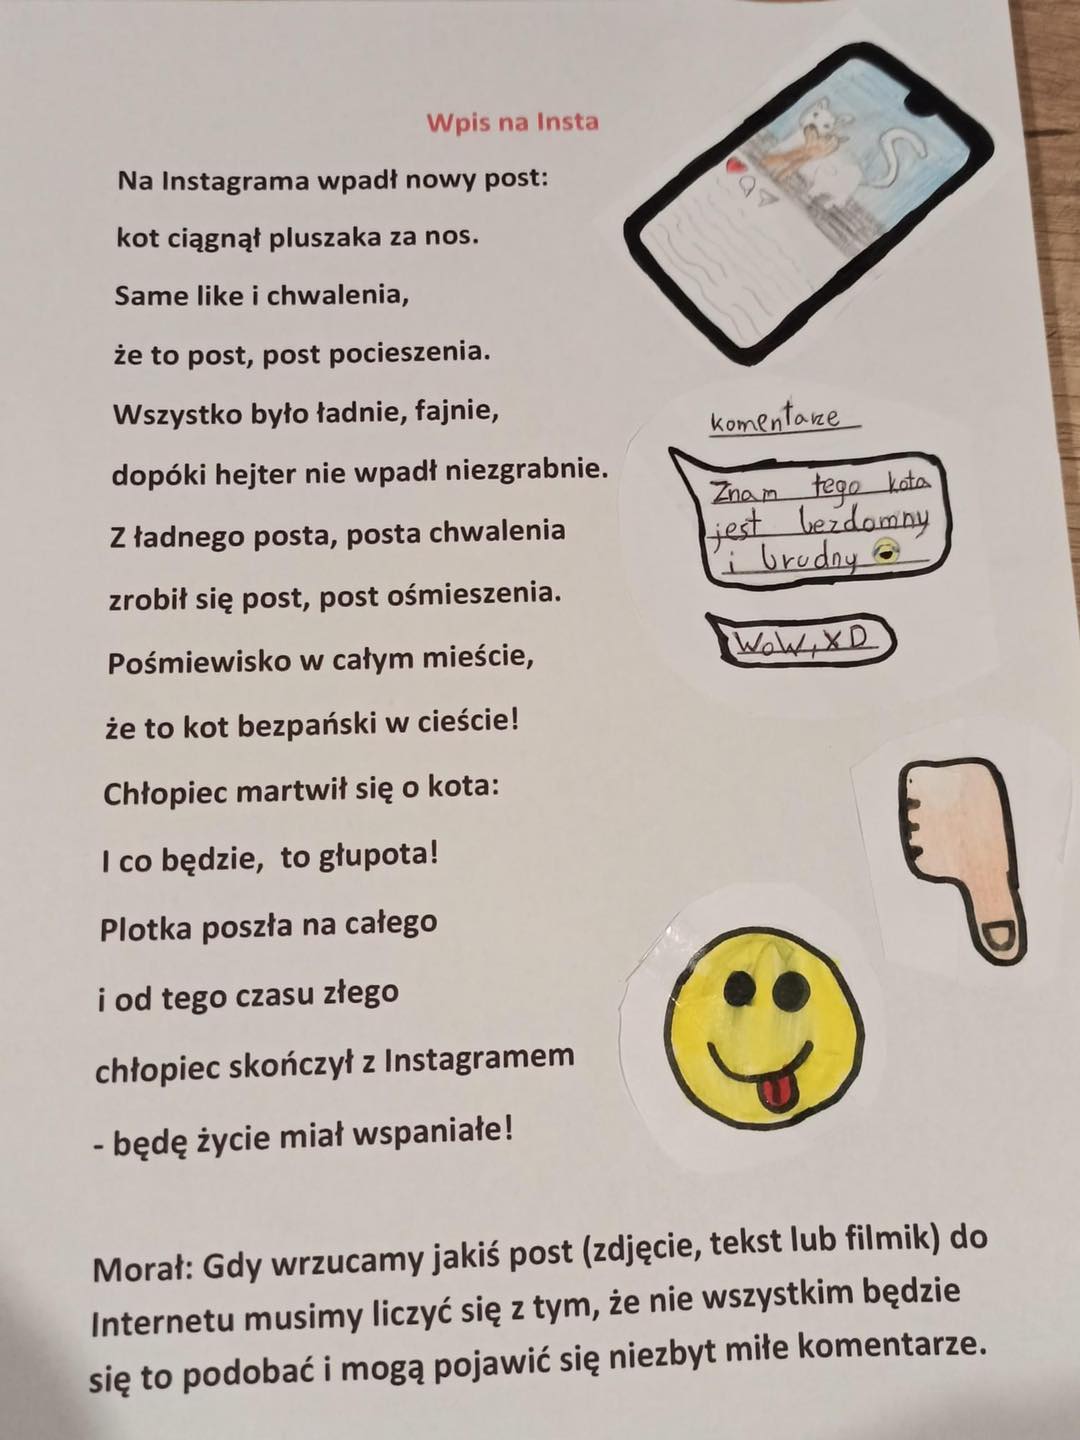 Wpis na Insta
Na Instagrama wpadł nowy post:
kot ciągnął pluszaka za nos.
Same like i chwalenia,
że to post, post pocieszenia.
Wszystko było ładnie, fajnie,
dopóki hejter nie wpadł niezgrabnie.
Z ładnego posta, posta chwalenia
zrobił się post, post ośmieszenia.
Pośmiewisko w całym mieście,
że to kot bezpański w cieście!
Chłopiec martwił się o kota:
I co będzie, to głupota!
Plotka poszła na całego
i od tego czasu złego
chłopiec skończył z Instagramem
- będę życie miał wspaniałe!
komentarze
Znam tego kota
jest bezdomny
i brudny 😂
WoW, XD
Morał: Gdy wrzucamy jakiś post (zdjęcie, tekst lub filmik) do
Internetu musimy liczyć się z tym, że nie wszystkim będzie
się to podobać i mogą pojawić się niezbyt miłe komentarze.